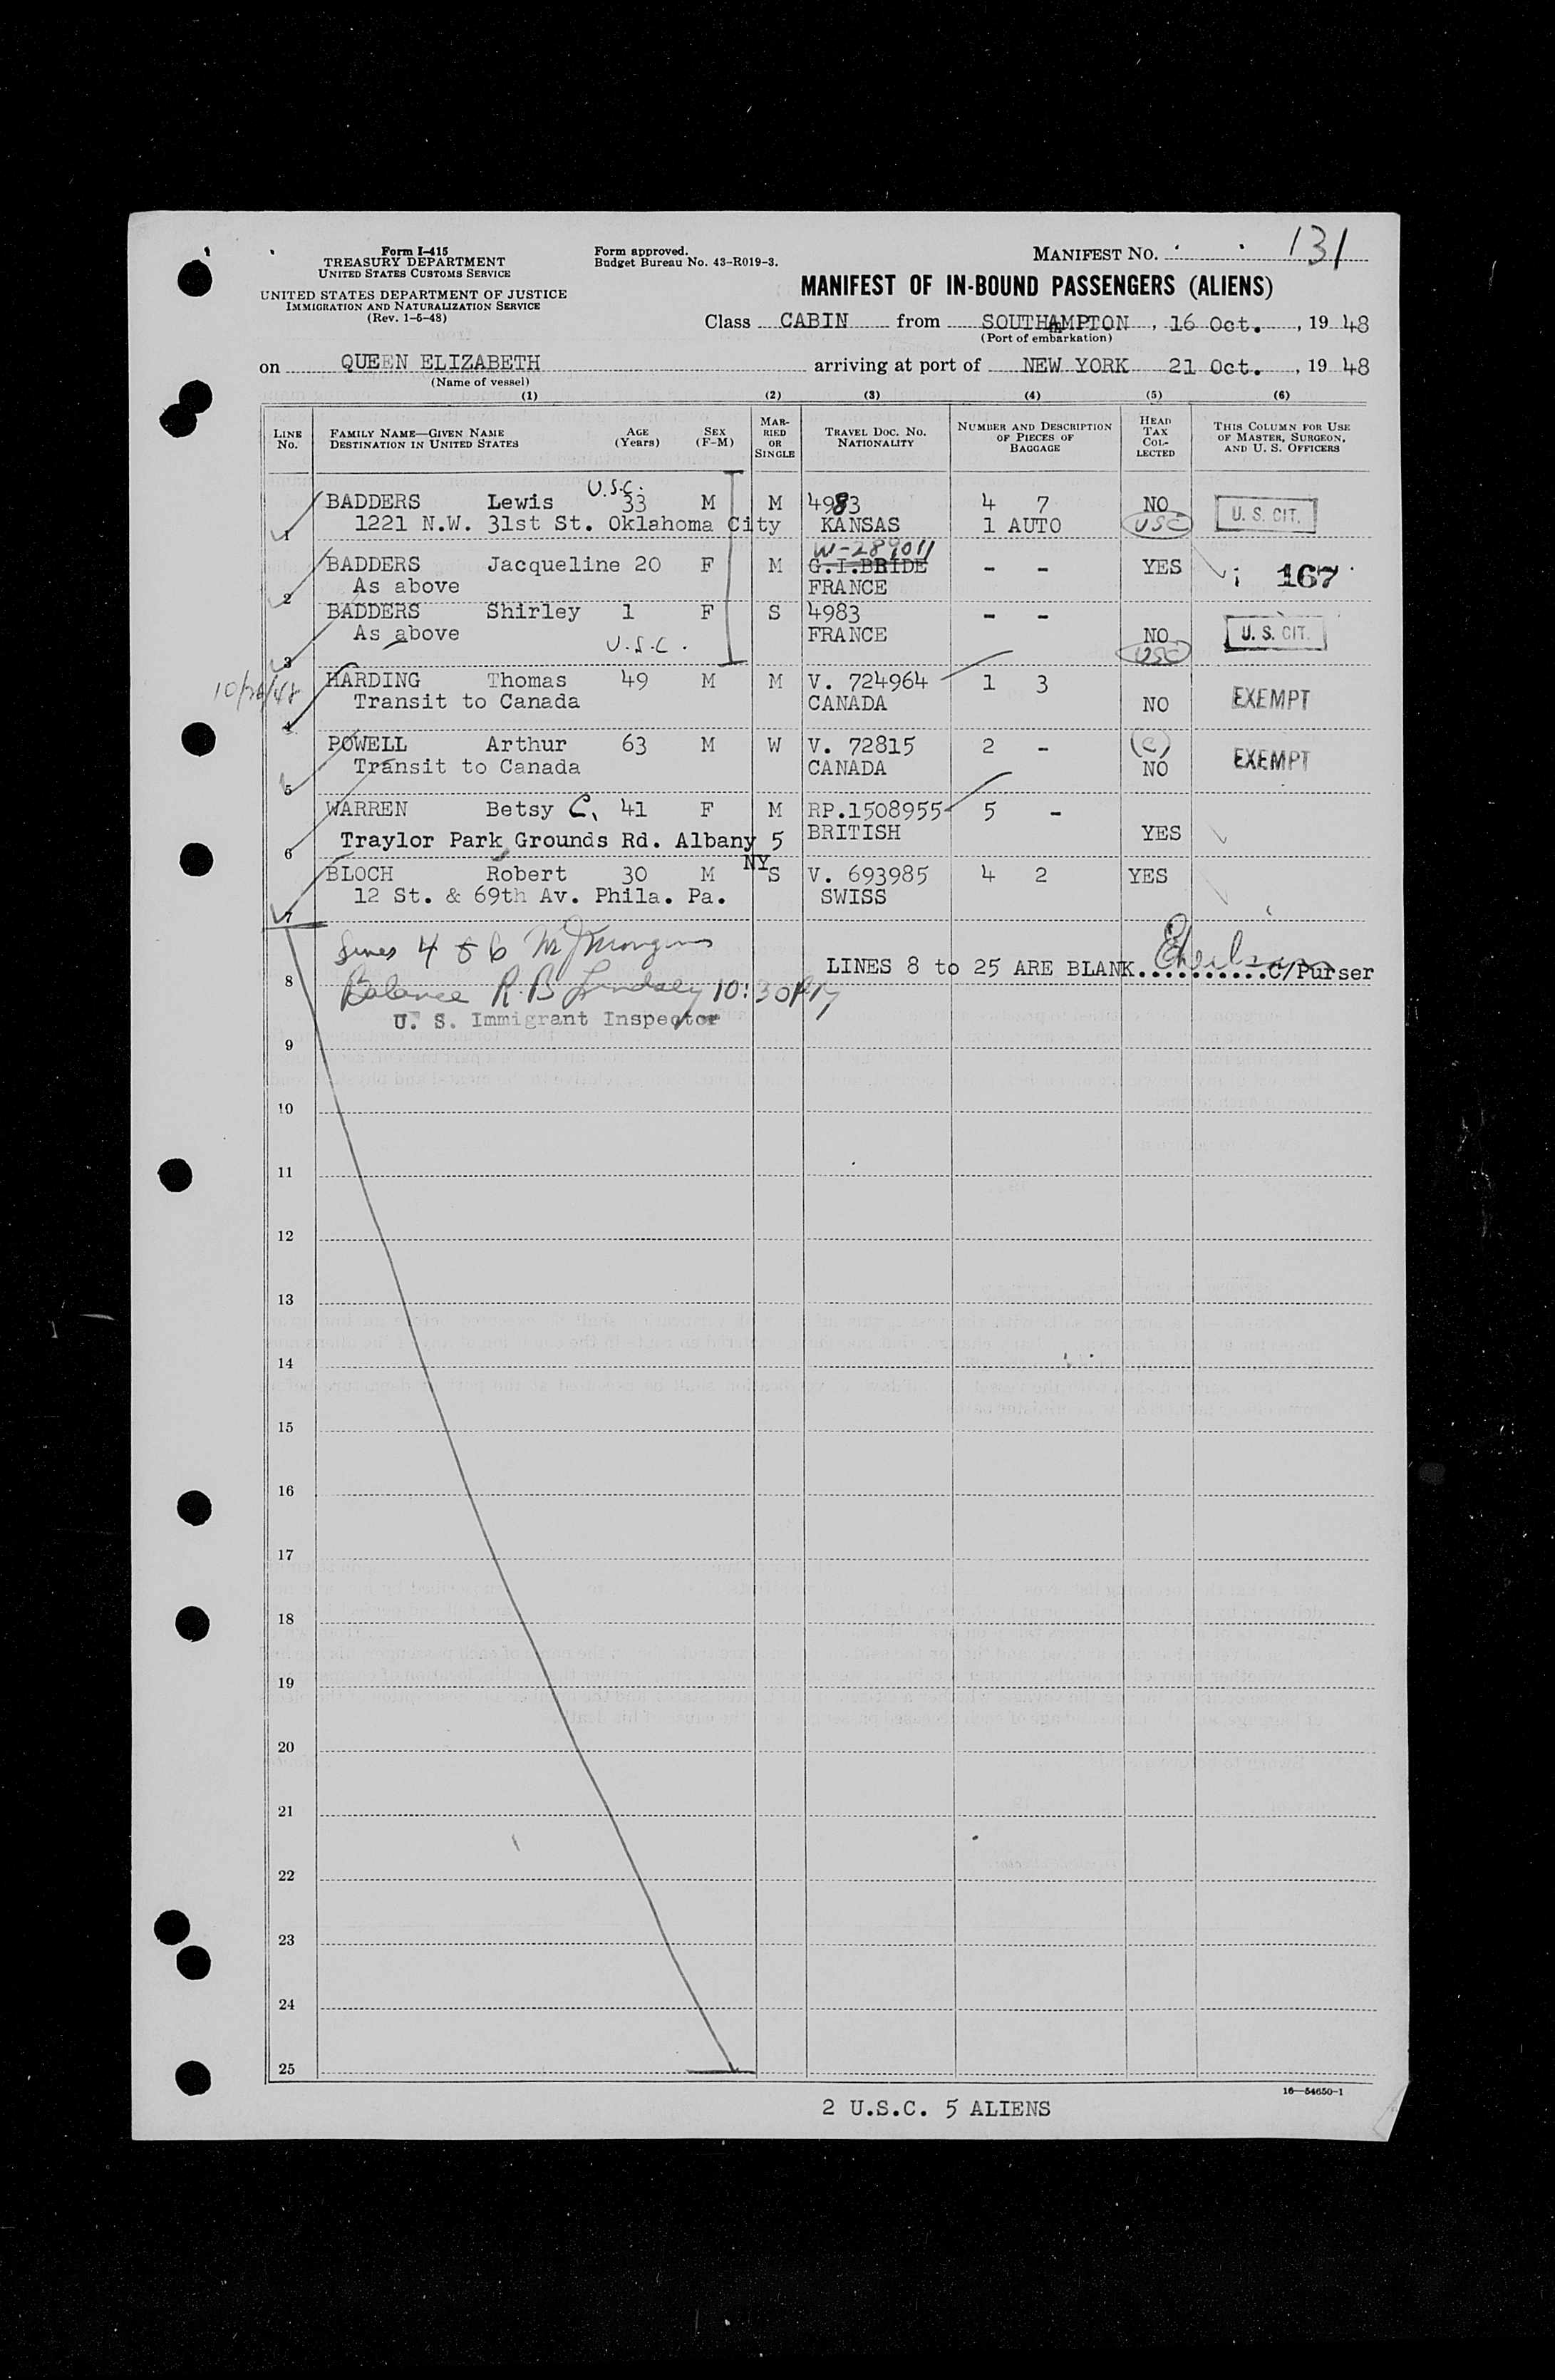 Form I-415
TREASURY DEPARTMENT
UNITED STATES CUSTOMS SERVICE
UNITED STATES DEPARTMENT OF JUSTICE
IMMIGRATION AND NATURALIZATION SERVICE
(Rev. 1-5-48)
Form approved.
Budget Bureau No. 43-R019-3.
MANIFEST NO. 131
MANIFEST OF IN-BOUND PASSENGERS (ALIENS)
Class CABIN from SOUTHAMPTON, 16 Oct., 19 48
(Port of embarkation)
on QUEEN ELIZABETH arriving at port of NEW YORK 21 Oct., 19 48
(Name of vessel)
(1) (2) (3) (4) (5) (6)
LINE No. FAMILY NAME—GIVEN NAME DESTINATION IN UNITED STATES AGE (Years) SEX (F-M) MARRIED OR SINGLE TRAVEL DOC. NO. NATIONALITY NUMBER AND DESCRIPTION OF PIECES OF BAGGAGE HEAD TAX COLLECTED THIS COLUMN FOR USE OF MASTER, SURGEON, AND U. S. OFFICERS
U.S.C.
BADDERS Lewis 33 M M 4983 4 7 NO U. S. CIT.
1 1221 N.W. 31st St. Oklahoma City KANSAS 1 AUTO USC
W-289011
BADDERS Jacqueline 20 F M G.I.BRIDE - - YES 167
2 As above FRANCE
BADDERS Shirley 1 F S 4983 - -
3 As above U.S.C. FRANCE NO USC U. S. CIT.
10/26/48
HARDING Thomas 49 M M V. 724964 1 3
4 Transit to Canada CANADA NO EXEMPT
POWELL Arthur 63 M W V. 72815 2 - (C)
5 Transit to Canada CANADA NO EXEMPT
WARREN Betsy C. 41 F M RP.1508955 5 -
6 Traylor Park Grounds Rd. Albany 5 NY BRITISH YES
BLOCH Robert 30 M S V. 693985 4 2 YES
7 12 St. & 69th Av. Phila. Pa. SWISS
Lines 4 & 6
LINES 8 to 25 ARE BLANK...........C/Purser
8 Balance R. B. Lindsey 10:30 PM
U. S. Immigrant Inspector
9
10
11
12
13
14
15
16
17
18
19
20
21
22
23
24
25
16—54650-1
2 U.S.C. 5 ALIENS